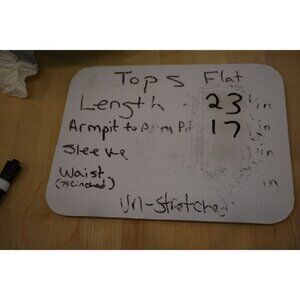 Tops Flat
Length 23 in
Armpit to Arm Pit 17 in
Sleeve in
Waist in
(if cinched)
Un-Stretched